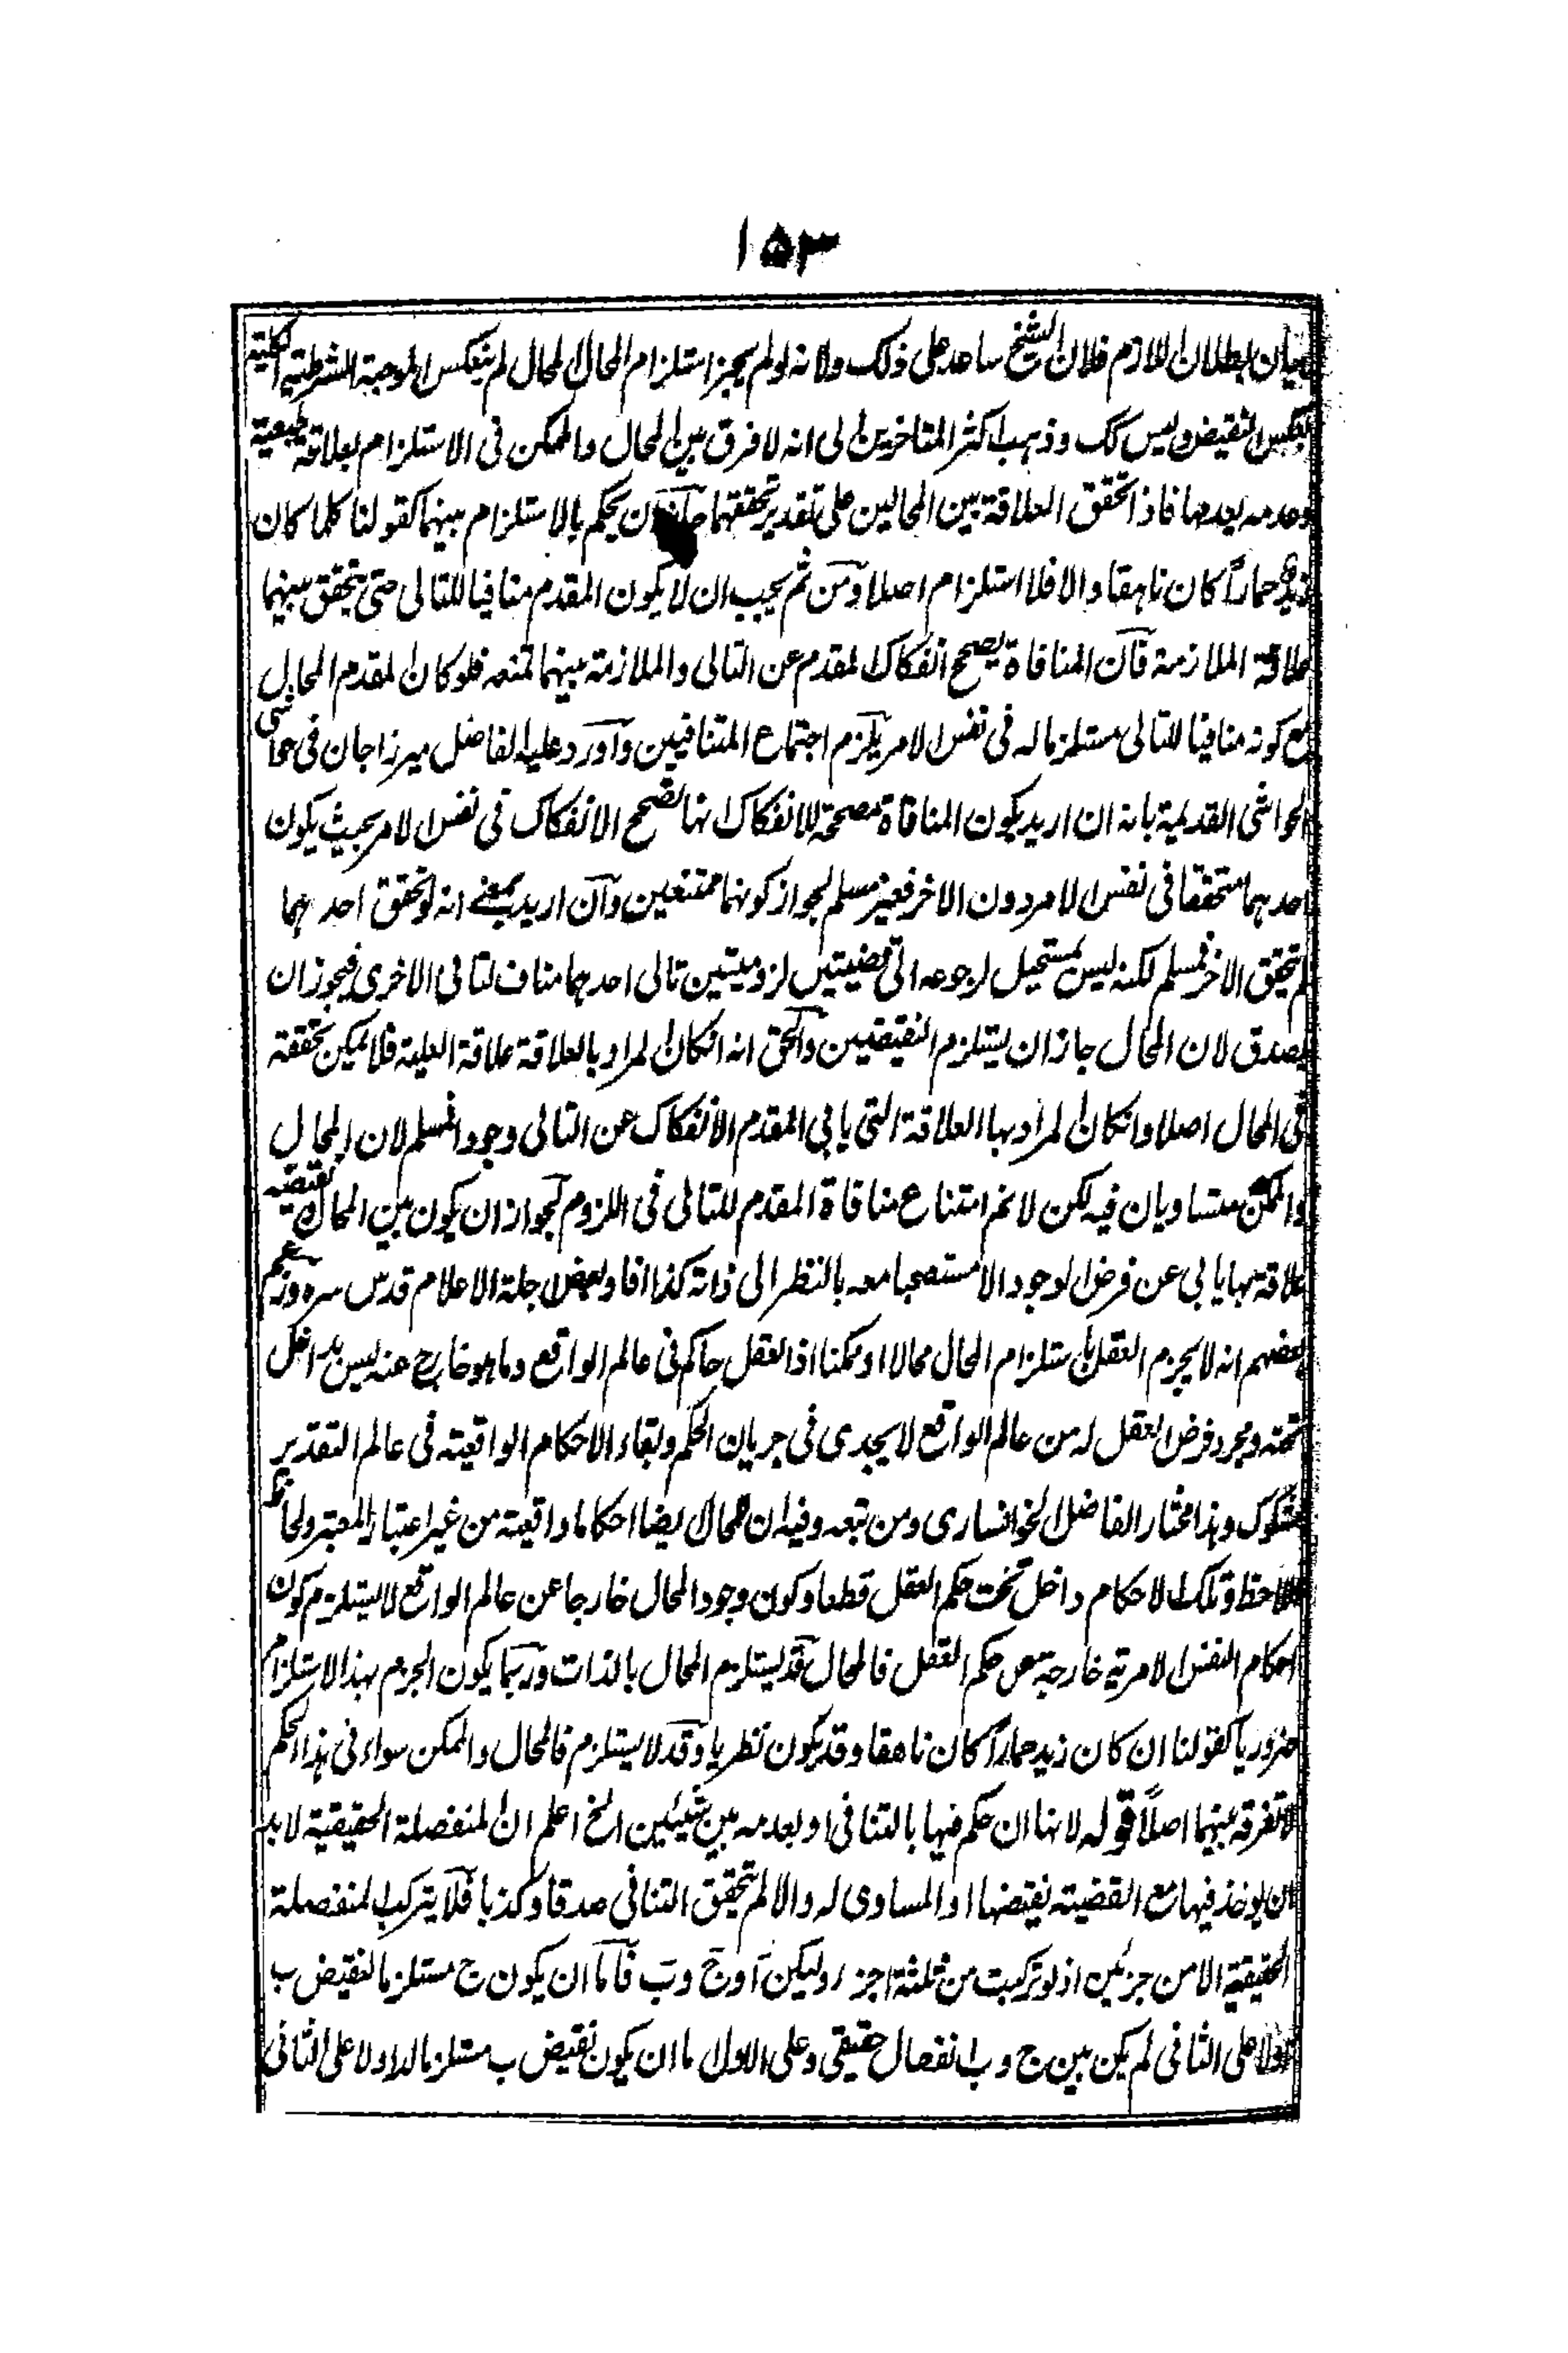 ١٥٣
بيان بطلان اللازم فلان الشيخ ساعد على ذلك ولانه لو لم يجز استلزام المحال المحال لم ينعكس الموجبة الشرطية الكلية
بعكس النقيض وليس كك وذهب اكثر المتاخرين الى انه لا فرق بين المحال والممكن فى الاستلزام بعلاقة طبيعية
وعدمه بعدمها فاذا تحقق العلاقة بين المحالين على تقدير تحققهما جاز ان يحكم بالاستلزام بينهما كقولنا كلما كان
زيد حماراً كان ناهقا والا فلا استلزام اصلا ومن ثم يجب ان لا يكون المقدم منافيا للتالى حتى يتحقق بينهما
علاقة الملازمة فان المنافاة يصحح انفكاك المقدم عن التالى والملازمة بينهما تمنعه فلو كان المقدم المحال
مع كونه منافيا للتالى مستلزما له فى نفس الامر يلزم اجتماع المتنافيين واورد عليه الفاضل ميرزاجان فى حواشى
الحواشى القديمة بانه ان اريد بكون المنافاة مصححة للانفكاك انها تصحح الانفكاك فى نفس الامر بحيث يكون
احدهما متحققا فى نفس الامر دون الاخر فغير مسلم لجواز كونهما ممتنعين وان اريد بمعنے انه لو تحقق احدهما
لم يتحقق الاخر فمسلم لكنه ليس بمستحيل لرجوعه الى قضيتين لزوميتين تالى احدهما مناف لتالى الاخرى فيجوز ان
يصدق لان المحال جاز ان يستلزم النقيضين والحق انه انكان المراد بالعلاقة علاقة العلية فلا يمكن تحققه
فى المحال اصلا وانكان المراد بها العلاقة التى يابى المقدم الانفكاك عن التالى وجودا فمسلم لان المحال
والممكن متساويان فيه لكن لا نم امتناع منافاة المقدم للتالى فى اللزوم لجواز ان يكون بين المحال ونقيضه
علاقة بها يابى عن فرض الوجود الا مستصحبا معه بالنظر الى ذاته كذا افاد بعض اجلة الاعلام قدس سره وزعم
بعضهم انه لا يجزم العقل باستلزام المحال محالا او ممكنا اذ العقل حاكم فى عالم الواقع وما هو خارج عنه ليس بداخل
تحته ومجرد فرض العقل له من عالم الواقع لا يجدى فى جريان الحكم وبقاء الاحكام الواقعية فى عالم التقدير
مشكوك وهذا مختار الفاضل الخوانسارى ومن تبعه وفيه ان للمحال ايضا احكاما واقعية من غير اعتبار المعتبر ولحاظ
اللاحظ وتلك الاحكام داخل تحت حكم العقل قطعا وكون وجود المحال خارجا عن عالم الواقع لا يستلزم كون
احكام النفس الامرية خارجة عن حكم العقل فالمحال قد يستلزم المحال بالذات وربما يكون الجزم بهذا الاستلزام
ضروريا كقولنا ان كان زيد حماراً كان ناهقا وقد يكون نظريا وقد لا يستلزم فالمحال والممكن سواء فى هذا الحكم
لا تفرقة بينهما اصلاً قوله لانها ان حكم فيها بالتنافى او بعدمه بين شيئين الخ اعلم ان المنفصلة الحقيقية لا بد
ان يوخذ فيها مع القضية نقيضها او المساوى له والا لم يتحقق التنافى صدقا وكذبا فلا يتركب المنفصلة
الحقيقية الا من جزئين اذ لو تركبت من ثلثة اجزاء وليكن آ وج وب فاما ان يكون ج مستلزما لنقيض ب
اولا على الثانى لم يكن بين ج وب انفصال حقيقى وعلى الاول اما ان يكون نقيض ب مستلزما لا اولا على الثانى